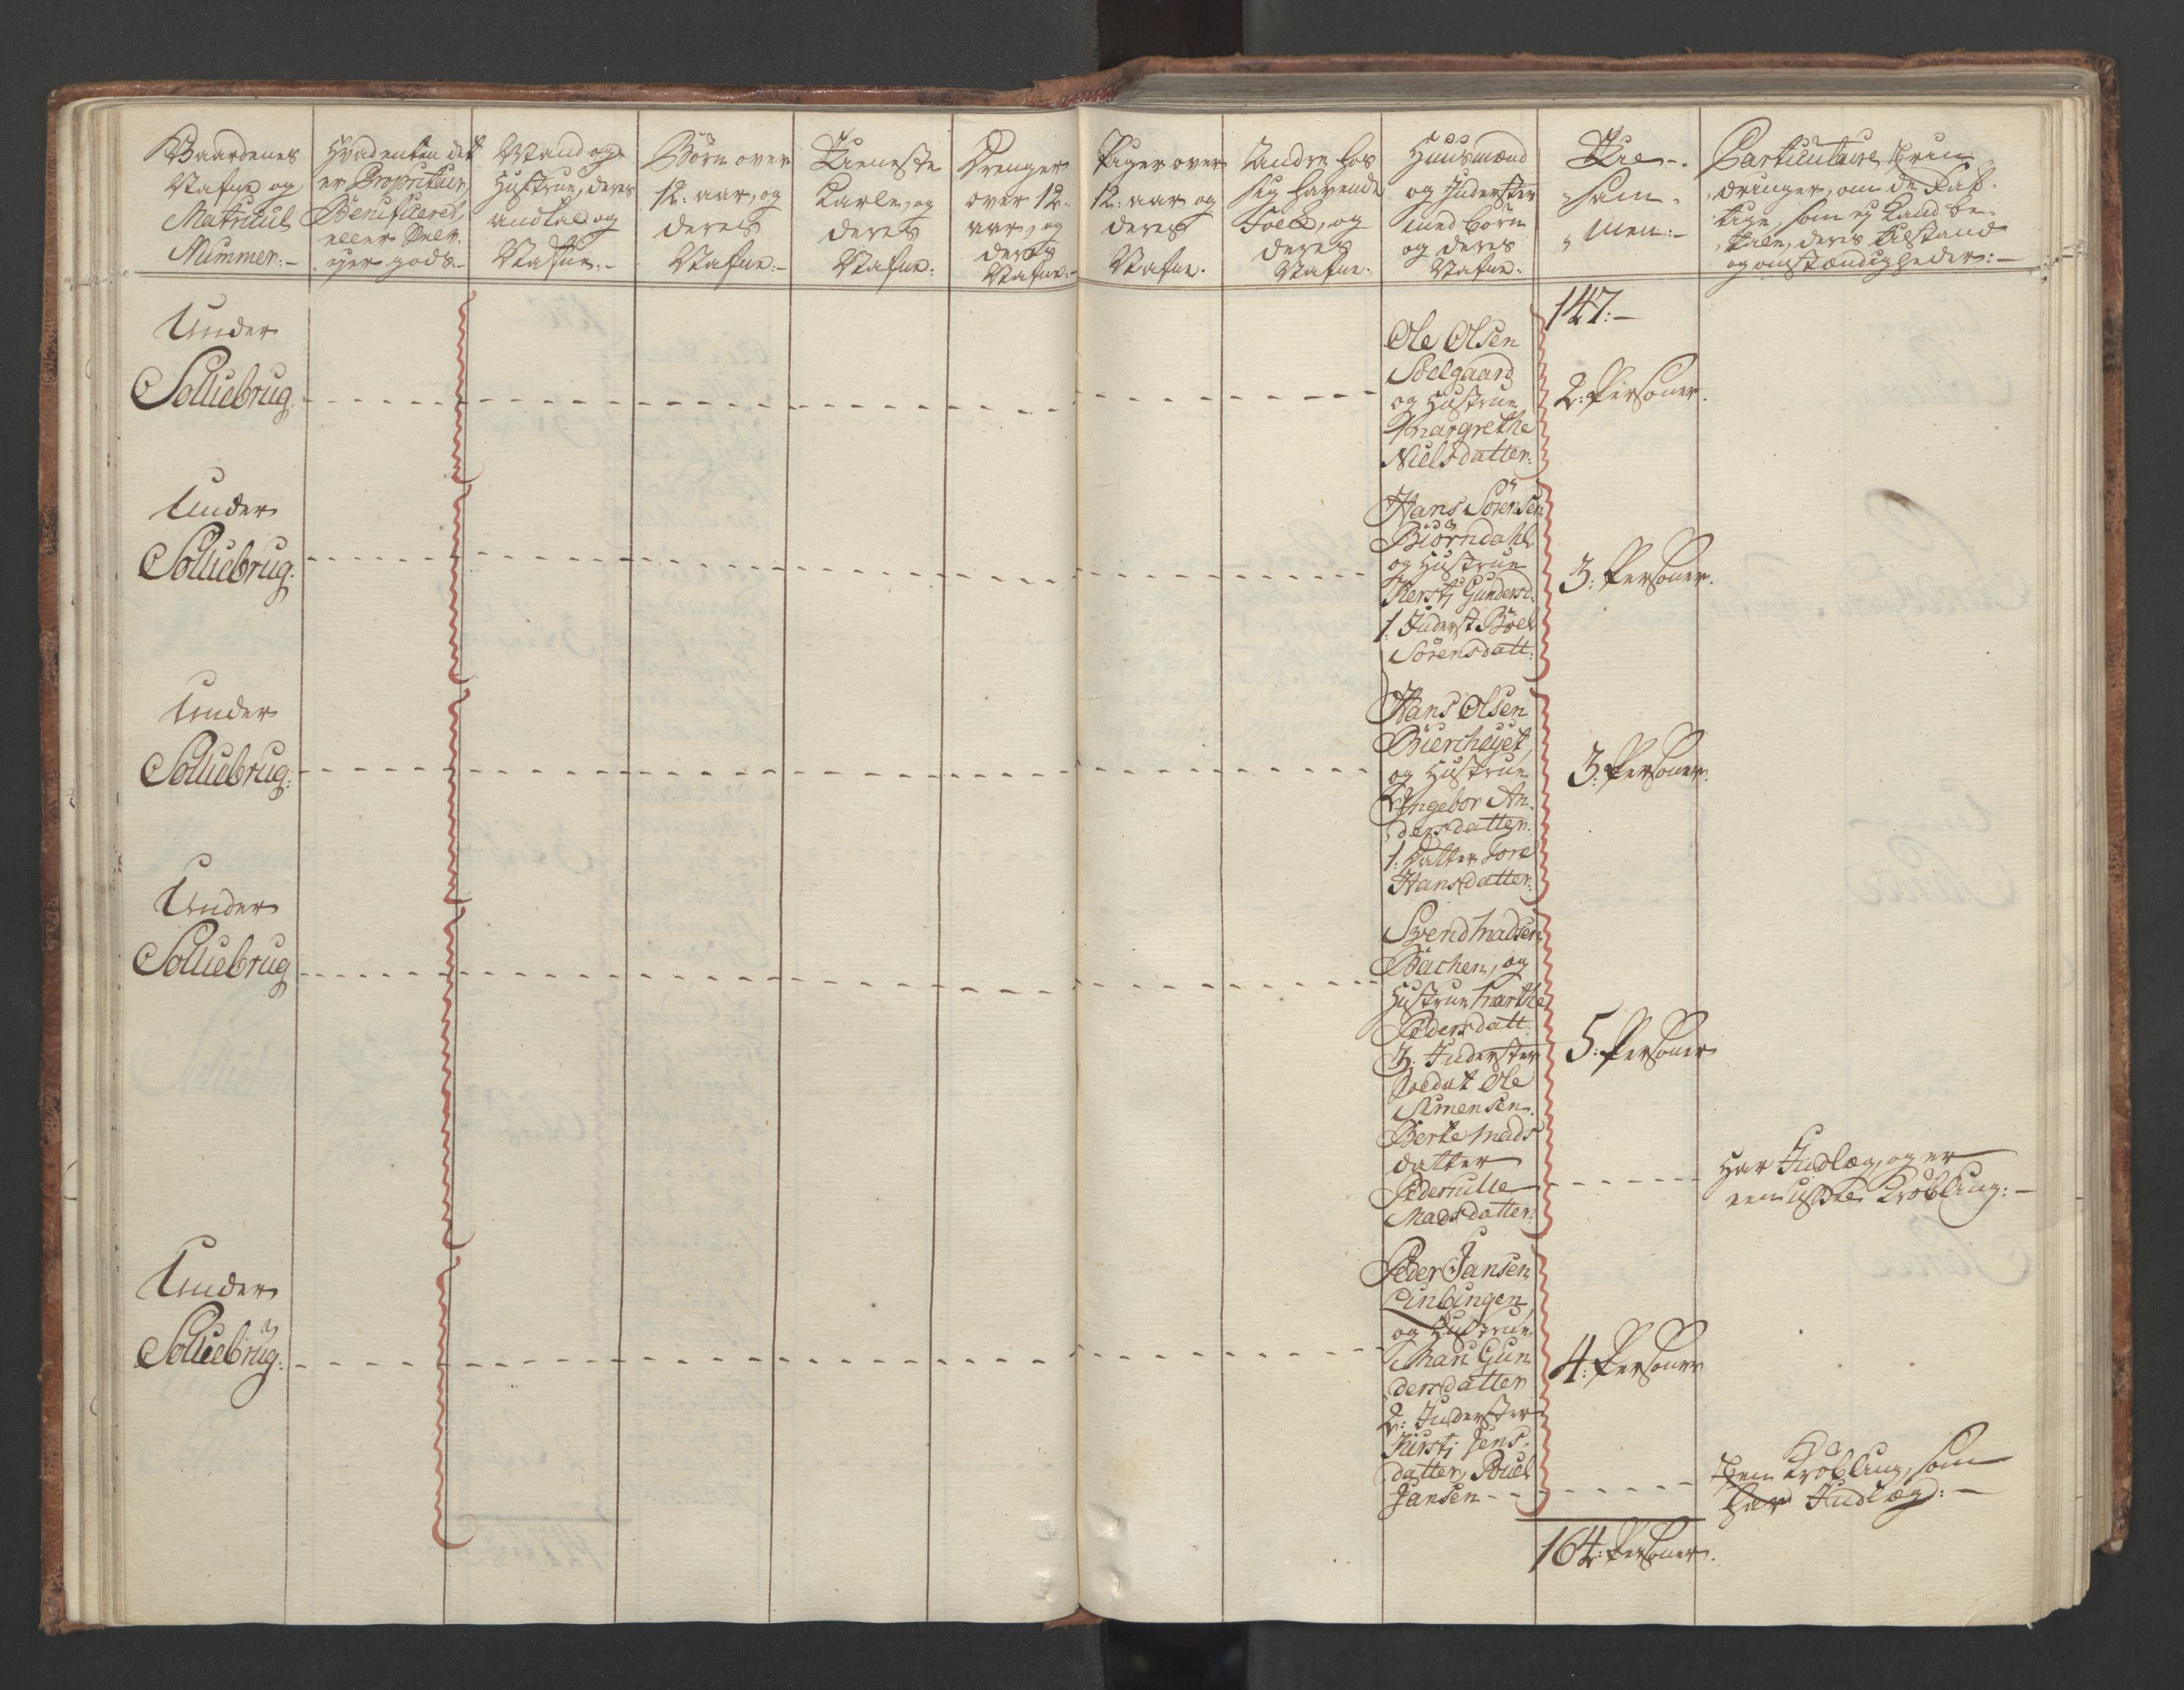 Gaardenes
Nafne og
Matricul
Nummer:-
Hvad enten det
er Proprietair,
Beneficeret,
eller Selv-
eyer gods.-
Mand og
Hustrue, deres
andtal og
Nafne.-
Börn over
12. aar, og
deres
Nafne.-
Tieneste
Karle, og
deres
Nafne:
Drenger
over 12.
aar, og
deres
Nafne.-
Piger over
12. aar og
deres
Nafne.
Andre hos
sig havende
Folck, og
deres
Nafne.
Huusmænd
og Inderster
med börn
og deres
Nafne.
Til-
sam-
men:-
Particulaire Erin-
dringer, om de Fat-
tige, som ey kand be-
tale, deres tilstand
og omstændigheder:-
147:-
Under
Solliebrug.
Ole Olsen
Sölgaard
og Hustrue
Margrethe
Nielsdatter:
2: Personer.
Under
Solliebrug.
Hans Sörensen
Biörndahl
og Hustrue
Kersti Gundersd.
1. Inderst Böel
Sörensdatt:
3: Personer.
Under
Solliebrug:
Hans Olsen
Bierchöyet,
og Hustrue
Ingebor An-
dersdatter.
1. Datter Sore
Hansdatter:
3: Personer.
Under
Solliebrug
Svend Madsen
Bachen, og
Hustrue Marthe
Pedersdatt.
3. Inderster
Soldat Ole
Simensen.
Berte Mads
datter
Pedernille
Madsdatter:
5: Personer
Har Indlæg, og er
een usšel Kröbling:-
Under
Solliebrug:
Peder Jansen
Linbingen,
og Hustrue
Mari Gun
dersdatter
2: Inderster
Kirsti Jens-
datter, Pouel
Jansen
4: Personer
Een Kröbling, som
har Indlæg:-
164: Personer.